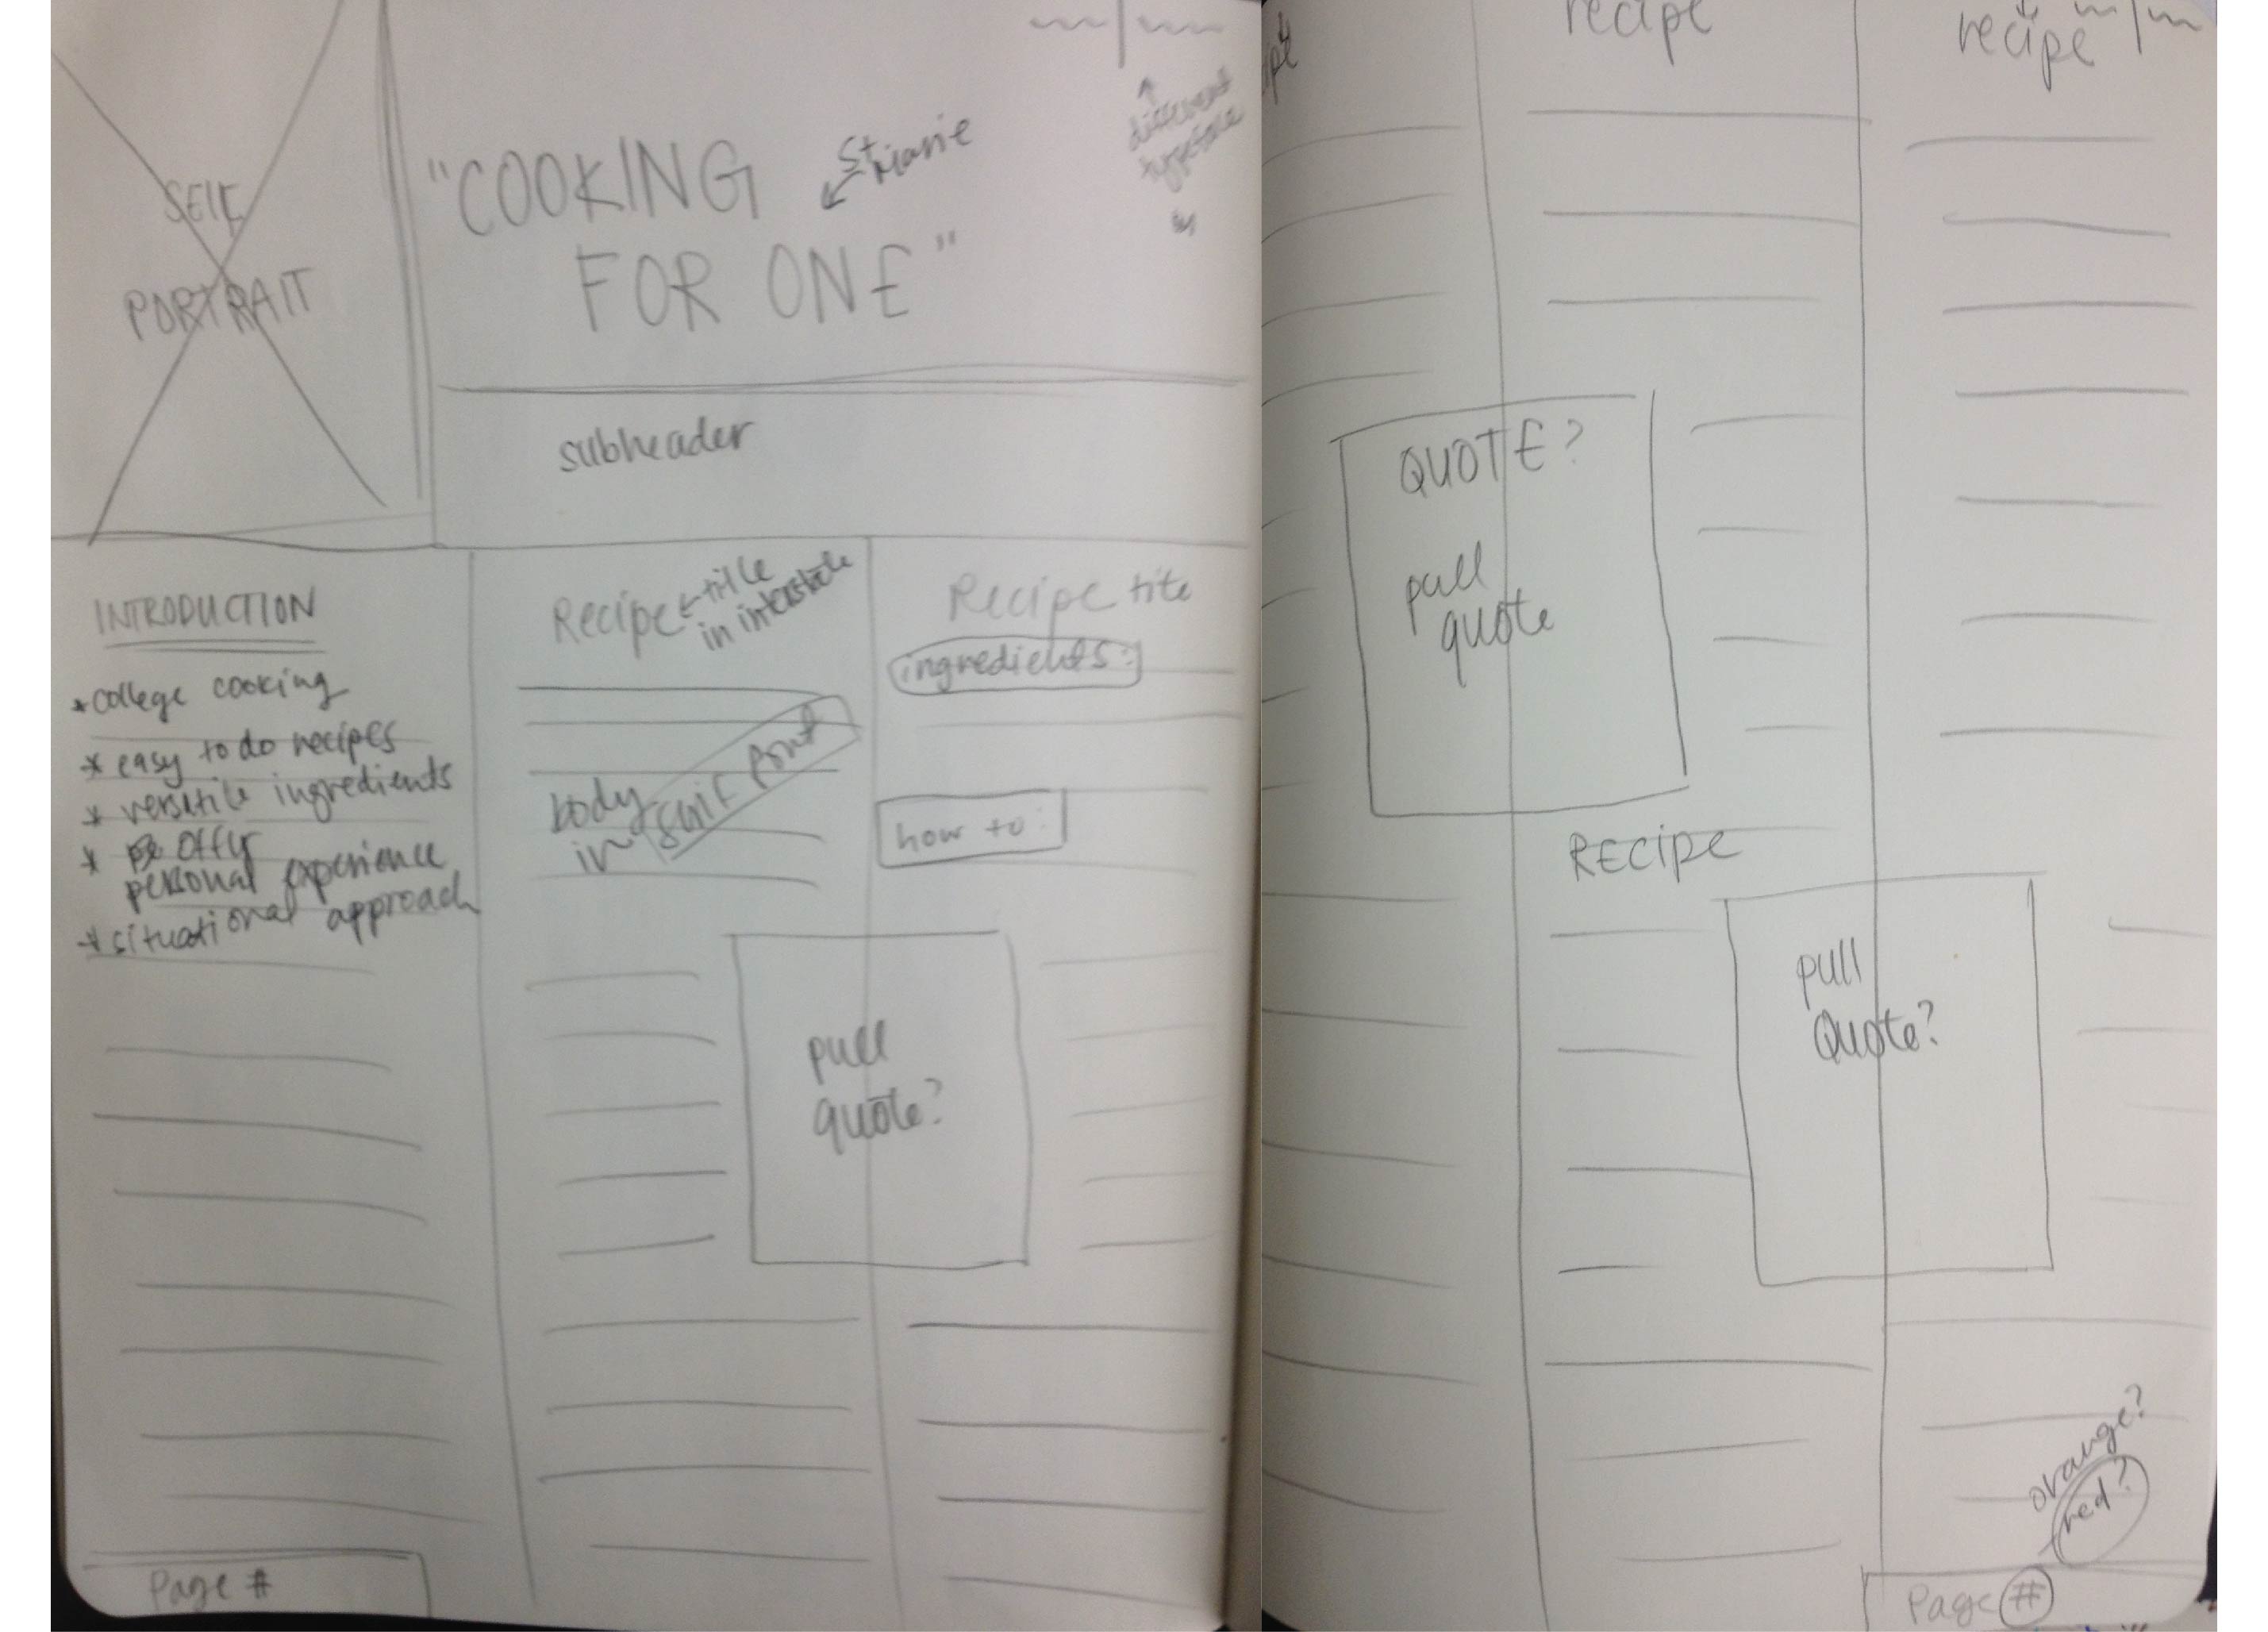 SELF
PORTRAIT
"COOKING
FOR ONE"
St Marie
different
typeface
subheader
INTRODUCTION
*college cooking
* easy to do recipes
* versatile ingredients
* offer
personal experience
* situational approach
Recipe
title
in interstate
body
in
serif font
Recipe tite
ingredients:
how to:
pull
quote?
Page #
recipe
recipe
QUOTE?
pull
quote
RECIPE
pull
Quote?
orange?
red?
Page #